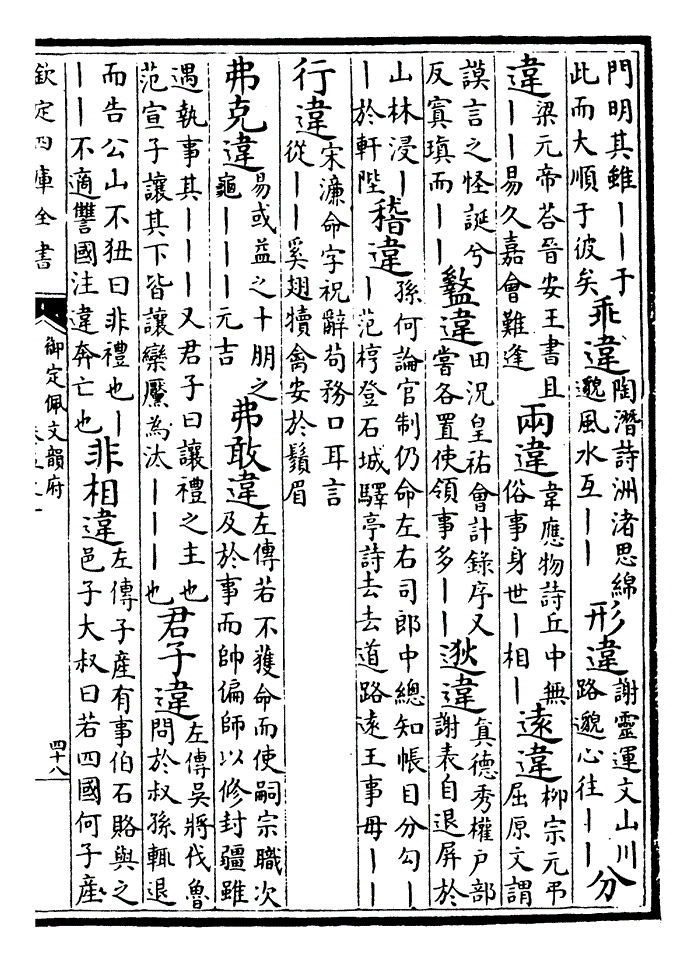 門明其雖——于此而大順于彼矣乖違陶潛詩洲渚思綿邈風水互——形違謝靈運文山川路邈心往——分
違梁元帝荅晉安王書且——易久嘉會難逢兩違韋應物詩丘中無俗事身世—相—遠違柳宗元弔屈原文謂
謨言之怪誕兮反寘瑱而——盭違田況皇祐會計錄序又嘗各置使領事多——逖違真德秀權戶部謝表自退屏於
山林浸——於軒陛稽違孫何論官制仍命左右司郎中總知帳目分勾——范梈登石城驛亭詩去去道路遠王事毋——
行違宋濂命字祝辭苟務口耳言從——奚翅犢禽安於鬚眉
弗克違易或益之十朋之龜———元吉弗敢違左傳若不獲命而使嗣宗職次及於事而帥偏師以修封疆雖
遇執事其———又君子曰讓禮之主也范宣子讓其下皆讓欒黶為汰———也君子違左傳吳將伐魯問於叔孫輒退
而告公山不狃曰非禮也———不適讐國注違奔亡也非相違左傳子產有事伯石賂與之邑子大叔曰若四國何子產
欽定四庫全書
御定佩文韻府
四十八